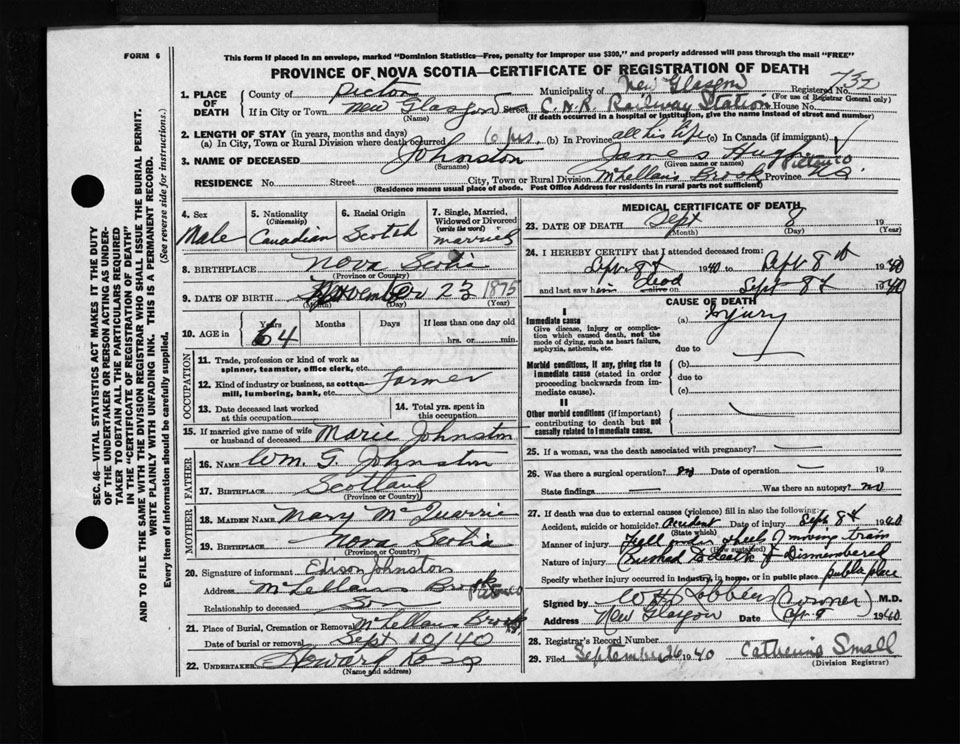 FORM 6
This form if placed in an envelope, marked "Dominion Statistics—Free, penalty for improper use $300," and properly addressed will pass through the mail "FREE"
PROVINCE OF NOVA SCOTIA—CERTIFICATE OF REGISTRATION OF DEATH
Registered No. 732
(For use of Registrar General only)
1. PLACE OF DEATH
County of Pictou Municipality of New Glasgow
If in City or Town New Glasgow Street C.N.R. Railway Station House No.
(Name) (If death occurred in a hospital or institution, give the name instead of street and number)
2. LENGTH OF STAY (in years, months and days)
(a) In City, Town or Rural Division where death occurred 6 hrs. (b) In Province all his life (c) In Canada (if immigrant)
3. NAME OF DECEASED Johnston James Hugh
(Surname) (Given name or names)
RESIDENCE No. Street City, Town or Rural Division McLellans Brook Pictou Co Province N.S.
(Residence means usual place of abode. Post Office Address for residents in rural parts not sufficient)
4. Sex Male
5. Nationality (Citizenship) Canadian
6. Racial Origin Scotch
7. Single, Married, Widowed or Divorced (write the word) married
8. BIRTHPLACE Nova Scotia
(Province or Country)
9. DATE OF BIRTH November 23 1875
(Month) (Day) (Year)
10. AGE in Years Months Days If less than one day old
64 hrs. or min.
OCCUPATION
11. Trade, profession or kind of work as spinner, teamster, office clerk, etc.
12. Kind of industry or business, as cotton-mill, lumbering, bank, etc. Farmer
13. Date deceased last worked at this occupation
14. Total yrs. spent in this occupation
15. If married give name of wife or husband of deceased Marie Johnston
FATHER
16. NAME Wm. G. Johnston
17. BIRTHPLACE Scotland
(Province or Country)
MOTHER
18. MAIDEN NAME Mary McQuarrie
19. BIRTHPLACE Nova Scotia
(Province or Country)
20. Signature of informant Edison Johnston
Address McLellans Brook Pictou Co
Relationship to deceased Son
21. Place of Burial, Cremation or Removal McLellans Brook
Date of burial or removal Sept 10/40
22. UNDERTAKER Howard Ross
(Name and address)
MEDICAL CERTIFICATE OF DEATH
23. DATE OF DEATH Sept 8 19
(Month) (Day) (Year)
24. I HEREBY CERTIFY that I attended deceased from:
Sept 8th 1940 to Sept 8th 1940
and last saw him dead alive on Sept 8th 1940
CAUSE OF DEATH
I
Immediate cause (a) Injury
Give disease, injury or complication which caused death, not the mode of dying, such as heart failure, asphyxia, asthenia, etc.
due to
Morbid conditions, if any, giving rise to immediate cause (stated in order proceeding backwards from immediate cause).
(b)
due to
(c)
II
Other morbid conditions (if important) contributing to death but not causally related to immediate cause.
25. If a woman, was the death associated with pregnancy?
26. Was there a surgical operation? no Date of operation 19
State findings Was there an autopsy? no
27. If death was due to external causes (violence) fill in also the following:
Accident, suicide or homicide? Accident Date of injury Sept 8th 1940
(State which)
Manner of injury Fell under wheels of moving train
(How sustained)
Nature of injury Crushed to death & Dismembered
Specify whether injury occurred in industry, in home, or in public place public place
Signed by (Coroner) M.D.
Address New Glasgow Date Sept 9 1940
28. Registrar's Record Number
29. Filed September 26 1940 Catherine Small
(Division Registrar)
SEC. 46—VITAL STATISTICS ACT MAKES IT THE DUTY
OF THE UNDERTAKER OR PERSON ACTING AS UNDER-
TAKER TO OBTAIN ALL THE PARTICULARS REQUIRED
IN THE "CERTIFICATE OF REGISTRATION OF DEATH"
AND TO FILE THE SAME WITH THE DIVISION REGISTRAR WHO SHALL ISSUE THE BURIAL PERMIT.
WRITE PLAINLY WITH UNFADING INK. THIS IS A PERMANENT RECORD.
Every item of information should be carefully supplied. (See reverse side for instructions.)